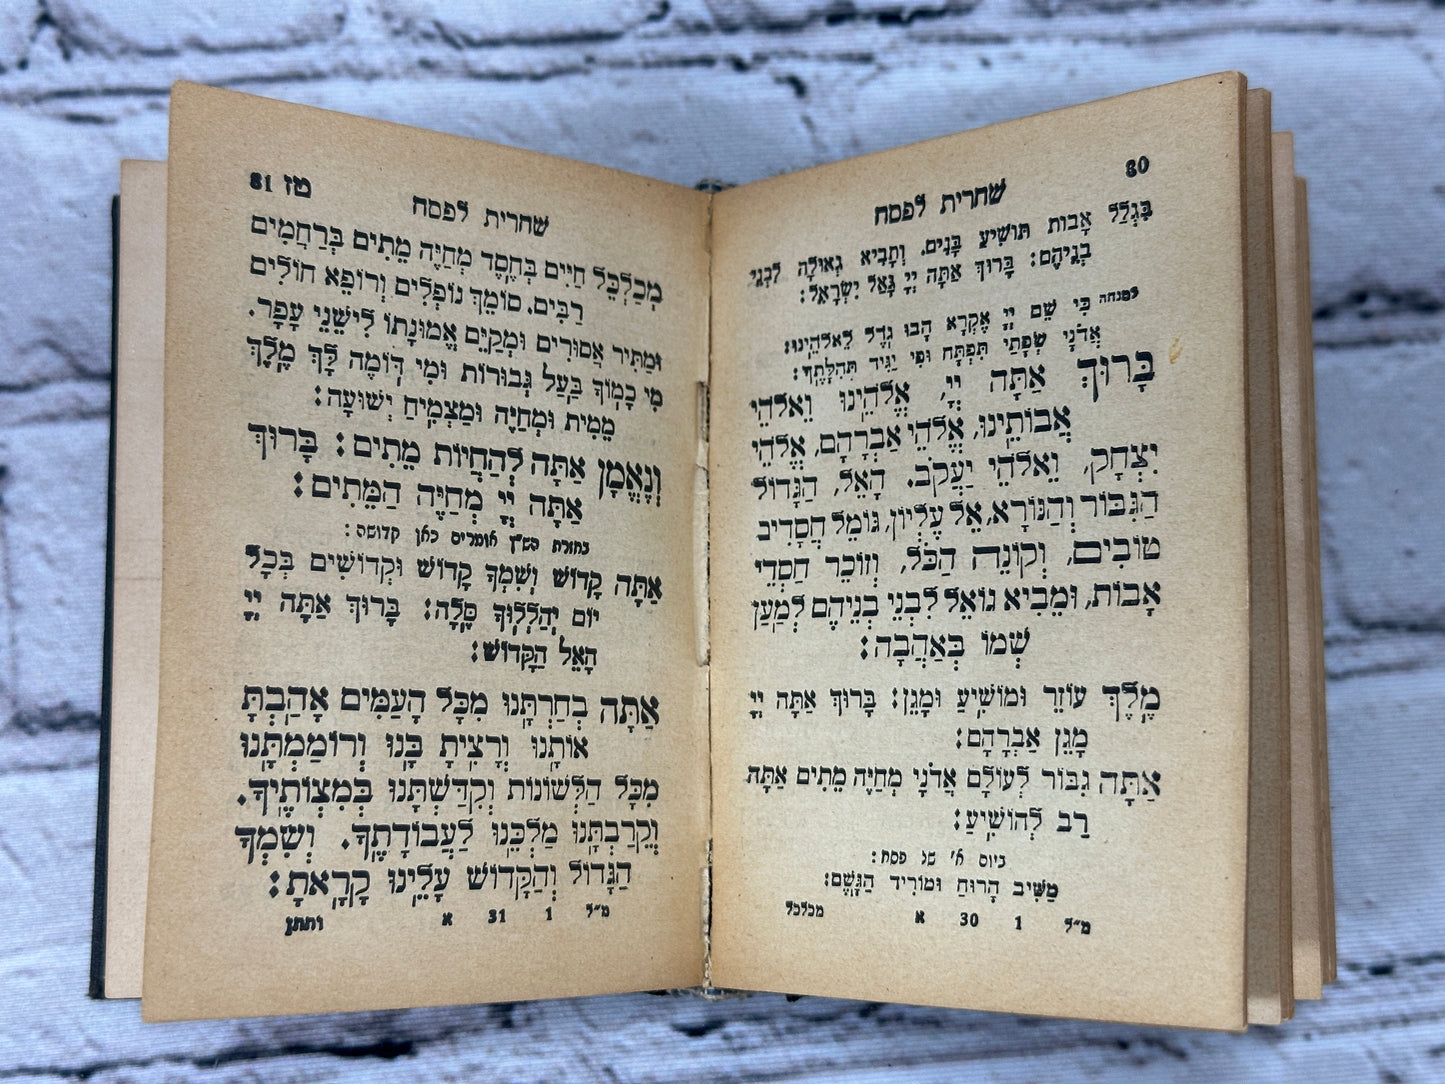 80
שחרית לפסח
בִּגְלַל אָבוֹת תּוֹשִׁיעַ בָּנִים. וְתָבִיא גְאוּלָה לִבְנֵי
בְנֵיהֶם: בָּרוּךְ אַתָּה יְיָ גָּאַל יִשְׂרָאֵל:
למנחה כִּי שֵׁם יְיָ אֶקְרָא הָבוּ גֹדֶל לֵאלֹהֵינוּ:
אֲדֹנָי שְׂפָתַי תִּפְתָּח וּפִי יַגִּיד תְּהִלָּתֶךָ:
בָּרוּךְ אַתָּה יְיָ, אֱלֹהֵינוּ וֵאלֹהֵי
אֲבוֹתֵינוּ, אֱלֹהֵי אַבְרָהָם, אֱלֹהֵי
יִצְחָק, וֵאלֹהֵי יַעֲקֹב. הָאֵל, הַגָּדוֹל
הַגִּבּוֹר וְהַנּוֹרָא, אֵל עֶלְיוֹן, גּוֹמֵל חֲסָדִים
טוֹבִים, וְקוֹנֵה הַכֹּל, וְזוֹכֵר חַסְדֵי
אָבוֹת, וּמֵבִיא גוֹאֵל לִבְנֵי בְנֵיהֶם לְמַעַן
שְׁמוֹ בְּאַהֲבָה:
מֶלֶךְ עוֹזֵר וּמוֹשִׁיעַ וּמָגֵן: בָּרוּךְ אַתָּה יְיָ
מָגֵן אַבְרָהָם:
אַתָּה גִּבּוֹר לְעוֹלָם אֲדֹנָי מְחַיֵּה מֵתִים אַתָּה
רַב לְהוֹשִׁיעַ:
ביום א' של פסח:
מַשִּׁיב הָרוּחַ וּמוֹרִיד הַגֶּשֶׁם:
מ״ל 1 30 א מכלכל
טז 81
שחרית לפסח
מְכַלְכֵּל חַיִּים בְּחֶסֶד מְחַיֵּה מֵתִים בְּרַחֲמִים
רַבִּים. סוֹמֵךְ נוֹפְלִים וְרוֹפֵא חוֹלִים
וּמַתִּיר אֲסוּרִים וּמְקַיֵּם אֱמוּנָתוֹ לִישֵׁנֵי עָפָר.
מִי כָמוֹךָ בַּעַל גְּבוּרוֹת וּמִי דּוֹמֶה לָּךְ מֶלֶךְ
מֵמִית וּמְחַיֶּה וּמַצְמִיחַ יְשׁוּעָה:
וְנֶאֱמָן אַתָּה לְהַחֲיוֹת מֵתִים: בָּרוּךְ
אַתָּה יְיָ מְחַיֵּה הַמֵּתִים:
בחזרת הש״ץ אומרים כאן קדושה:
אַתָּה קָדוֹשׁ וְשִׁמְךָ קָדוֹשׁ וּקְדוֹשִׁים בְּכָל
יוֹם יְהַלְלוּךָ סֶּלָה: בָּרוּךְ אַתָּה יְיָ
הָאֵל הַקָּדוֹשׁ:
אַתָּה בְחַרְתָּנוּ מִכָּל הָעַמִּים אָהַבְתָּ
אוֹתָנוּ וְרָצִיתָ בָּנוּ וְרוֹמַמְתָּנוּ
מִכָּל הַלְּשׁוֹנוֹת וְקִדַּשְׁתָּנוּ בְּמִצְוֹתֶיךָ.
וְקֵרַבְתָּנוּ מַלְכֵּנוּ לַעֲבוֹדָתֶךָ. וְשִׁמְךָ
הַגָּדוֹל וְהַקָּדוֹשׁ עָלֵינוּ קָרָאתָ:
מ״ל 1 31 א ותתן